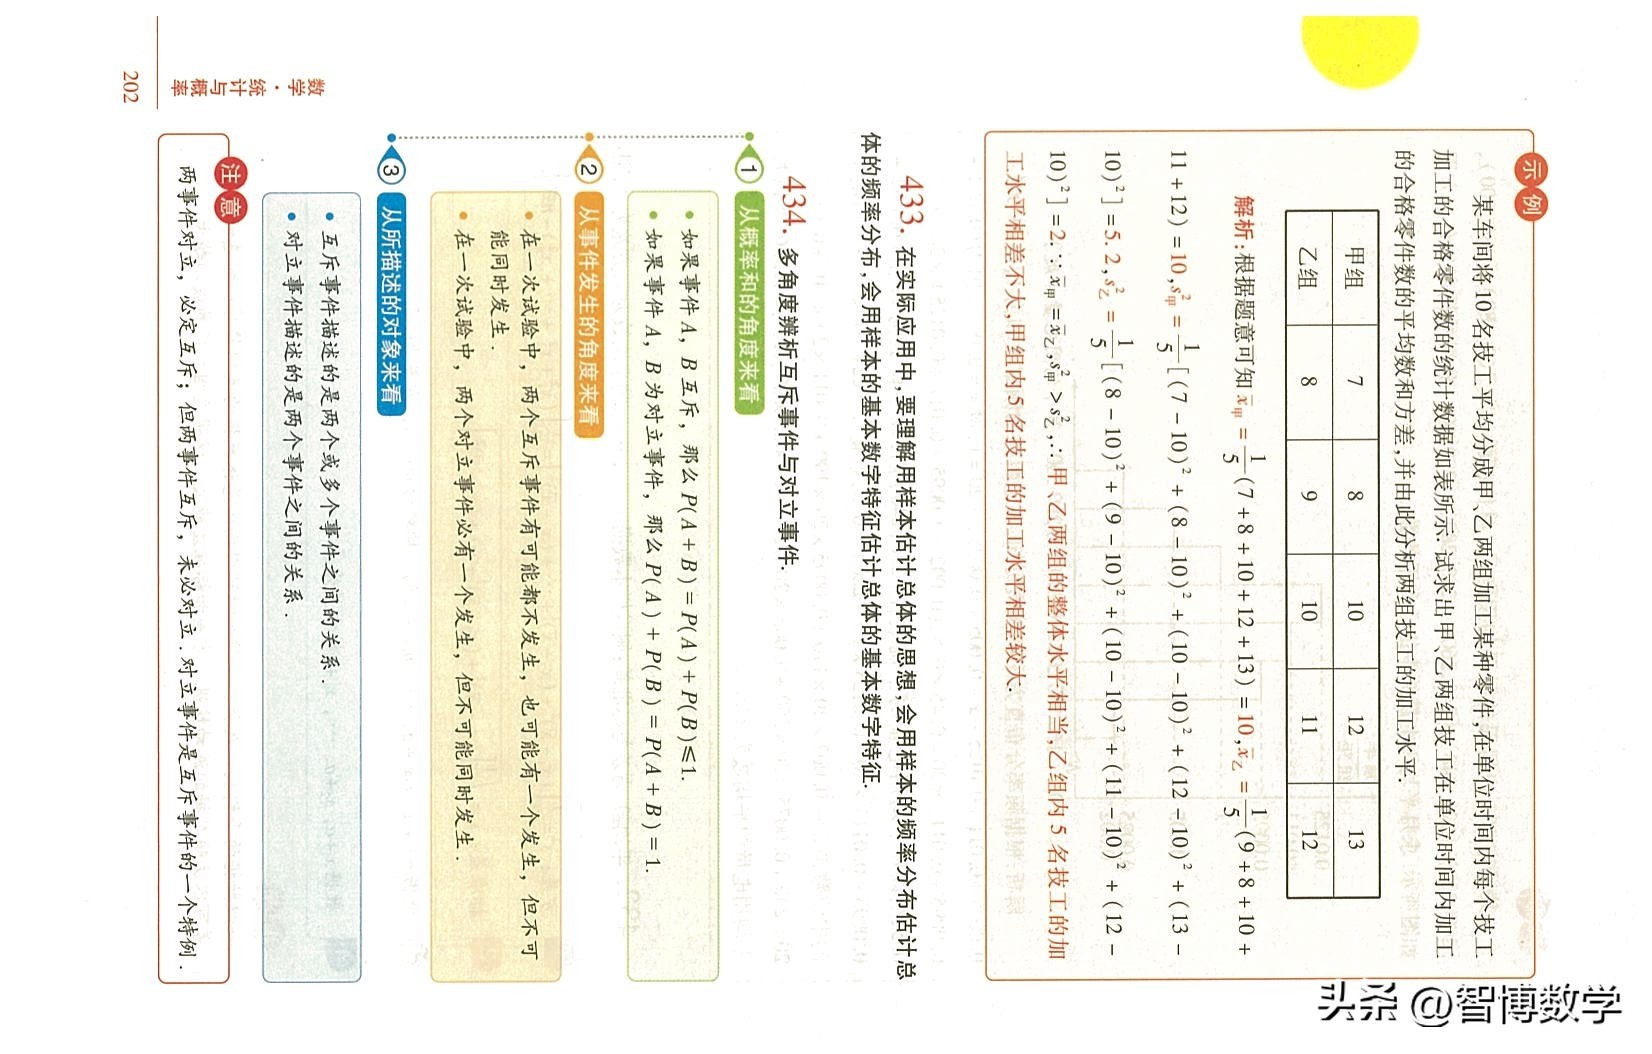 示例
某车间将10名技工平均分成甲、乙两组加工某种零件,在单位时间内每个技工
加工的合格零件数的统计数据如表所示.试求出甲、乙两组技工在单位时间内加工
的合格零件数的平均数和方差,并由此分析两组技工的加工水平.
甲组 7 8 10 12 13
乙组 8 9 10 11 12
解析:根据题意可知x̄甲=1/5(7+8+10+12+13)=10,x̄乙=1/5(9+8+10+
11+12)=10,s²甲=1/5[(7-10)²+(8-10)²+(10-10)²+(12-10)²+(13-
10)²]=5.2,s²乙=1/5[(8-10)²+(9-10)²+(10-10)²+(11-10)²+(12-
10)²]=2.∵x̄甲=x̄乙,s²甲>s²乙,∴甲、乙两组的整体水平相当,乙组内5名技工的加
工水平相差不大,甲组内5名技工的加工水平相差较大.
433. 在实际应用中,要理解用样本估计总体的思想,会用样本的频率分布估计总
体的频率分布,会用样本的基本数字特征估计总体的基本数字特征.
434. 多角度辨析互斥事件与对立事件.
1 从概率和的角度来看
• 如果事件A,B互斥,那么P(A+B)=P(A)+P(B)≤1.
• 如果事件A,B为对立事件,那么P(A)+P(B)=P(A+B)=1.
2 从事件发生的角度来看
• 在一次试验中,两个互斥事件有可能都不发生,也可能有一个发生,但不可
能同时发生.
• 在一次试验中,两个对立事件必有一个发生,但不可能同时发生.
3 从所描述的对象来看
• 互斥事件描述的是两个或多个事件之间的关系.
• 对立事件描述的是两个事件之间的关系.
注意
两事件对立,必定互斥;但两事件互斥,未必对立.对立事件是互斥事件的一个特例.
数学·统计与概率
202
头条 @智博数学